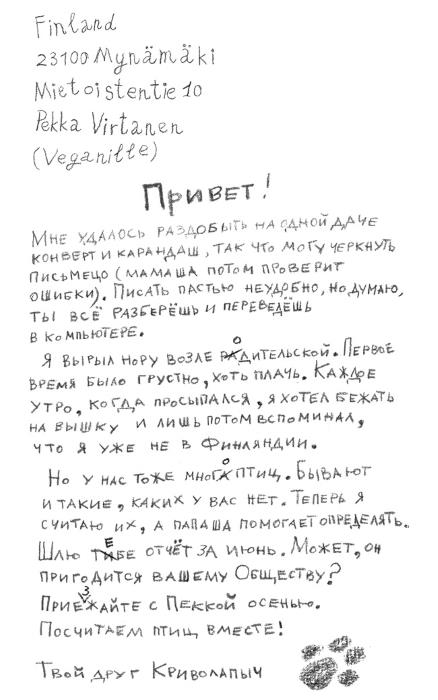 Finland
23100 Mynämäki
Mietoistentie 10
Pekka Virtanen
(Veganille)
Привет!
Мне удалось раздобыть на одной даче
конверт и карандаш, так что могу черкнуть
письмецо (мамаша потом проверит
ошибки). Писать пастью неудобно, но думаю,
ты всё разберёшь и переведёшь
в компьютере.
Я вырыл нору возле родительской. Первое
время было грустно, хоть плачь. Каждое
утро, когда просыпался, я хотел бежать
на вышку и лишь потом вспоминал,
что я уже не в Финляндии.
Но у нас тоже много птиц. Бывают
и такие, каких у вас нет. Теперь я
считаю их, а папаша помогает определять.
Шлю тебе отчёт за июнь. Может, он
пригодится вашему Обществу?
Приезжайте с Пеккой осенью.
Посчитаем птиц вместе!
Твой друг Криволапыч